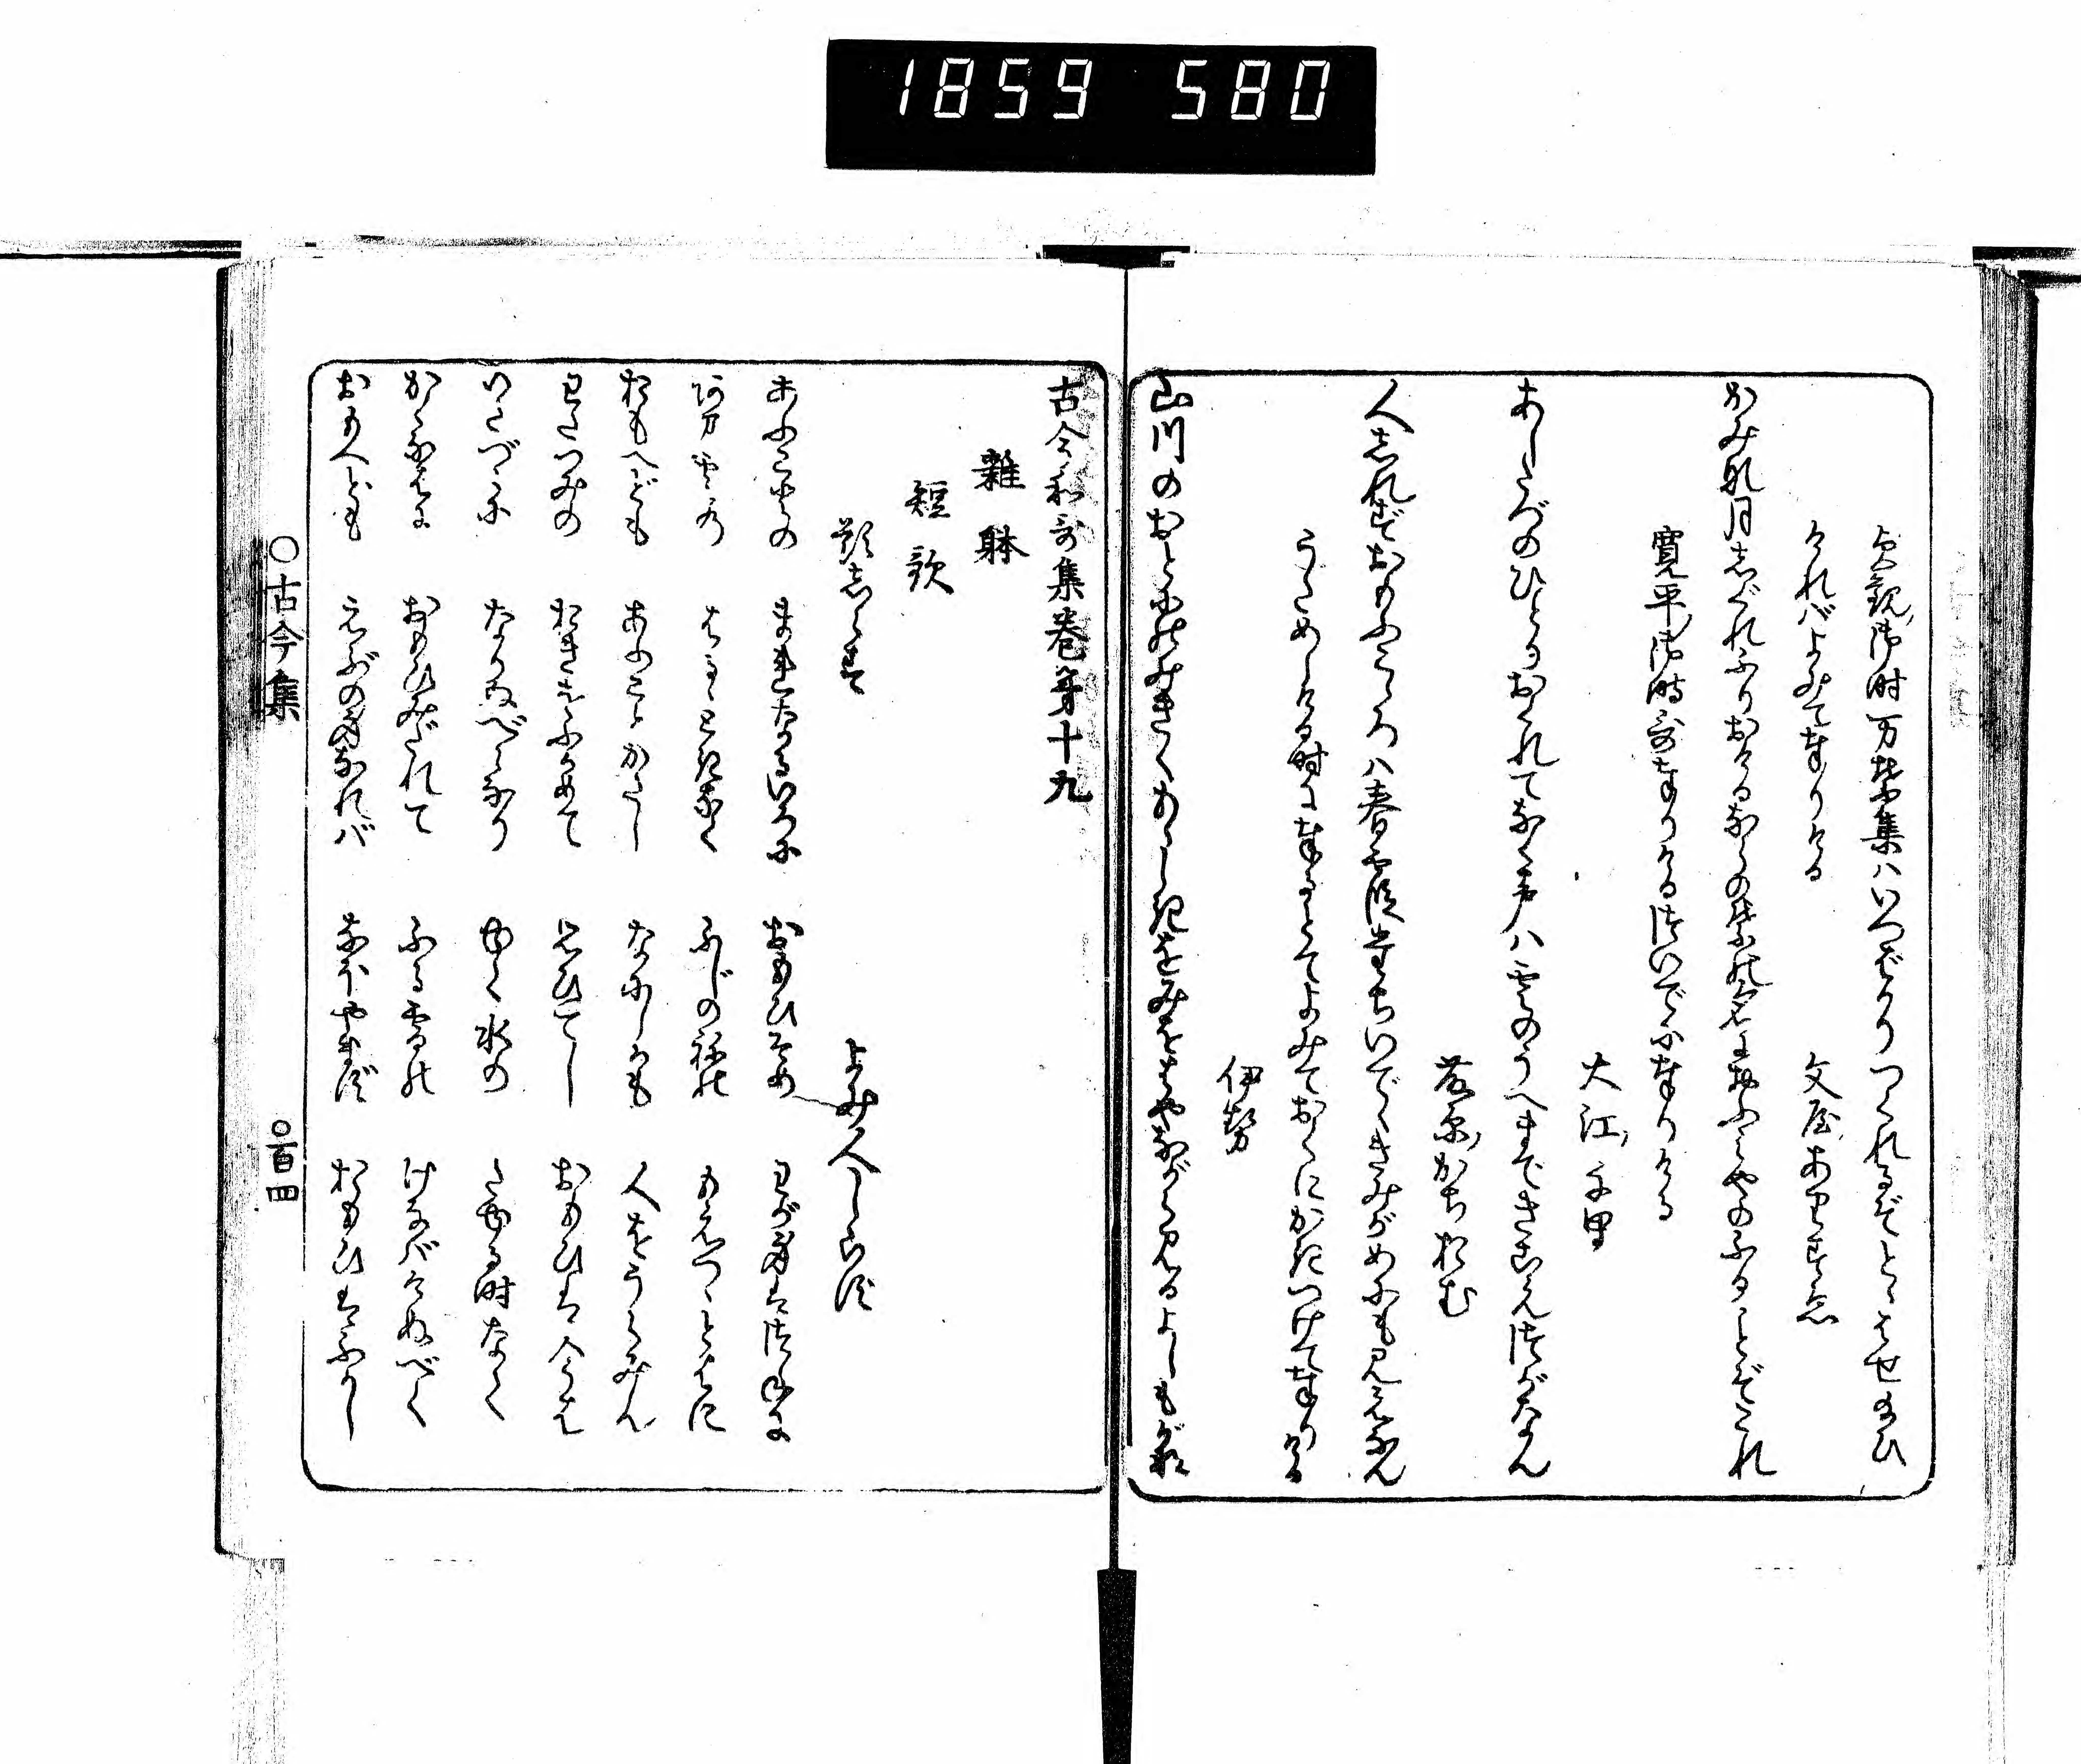 1859 580
貞観御時万葉集はいつばかりつくれるぞととはせ給ひ
ければよみて奉りける
文屋ありすゑ
かみな月しぐれふりおけるならの葉の名におふみやのふることぞこれ
寛平御時哥奉りけるついでに奉りける
大江千里
あしたづのひとりおくれてなく声は雲のうへまできこえつがなん
藤原かちおむ
人しれずおもふこゝろは春霞たちいでゝきみがめにも見えなん
うためしける時に奉るとてよみておくにかきつけて奉りける
伊勢
山川のおとにのみきくもゝしきをみをはやながら見るよしもがな
古今和哥集巻第十九
雑躰
短歌
題しらず
よみ人しらず
あふことの まれなるいろに おもひそめ わが身はつねに
あま雲の はるゝときなく ふじのねの もえつゝとはに
おもへども あふことかたし なにしかも 人をうらみん
わたつみの おきをふかめて おもひてし おもひは今は
いたづらに なりぬべらなり ゆく水の たゆる時なく
かくなわに おもひみだれて ふる雪の けなばけぬべく
おもへども えぶの身なれば なほやまず おもひはふかし
○古今集
○百四